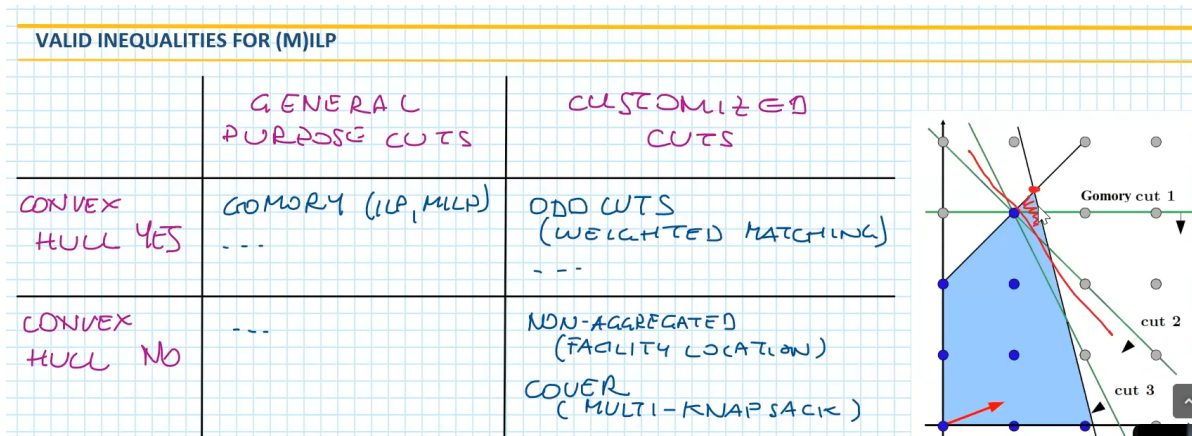 VALID INEQUALITIES FOR (M)ILP
GENERAL
PURPOSE CUTS
CUSTOMIZED
CUTS
CONVEX
HULL YES
GOMORY (ILP, MILP)
---
ODD CUTS
(WEIGHTED MATCHING)
---
CONVEX
HULL NO
---
NON-AGGREGATED
(FACILITY LOCATION)
COVER
(MULTI-KNAPSACK)
Gomory cut 1
cut 2
cut 3